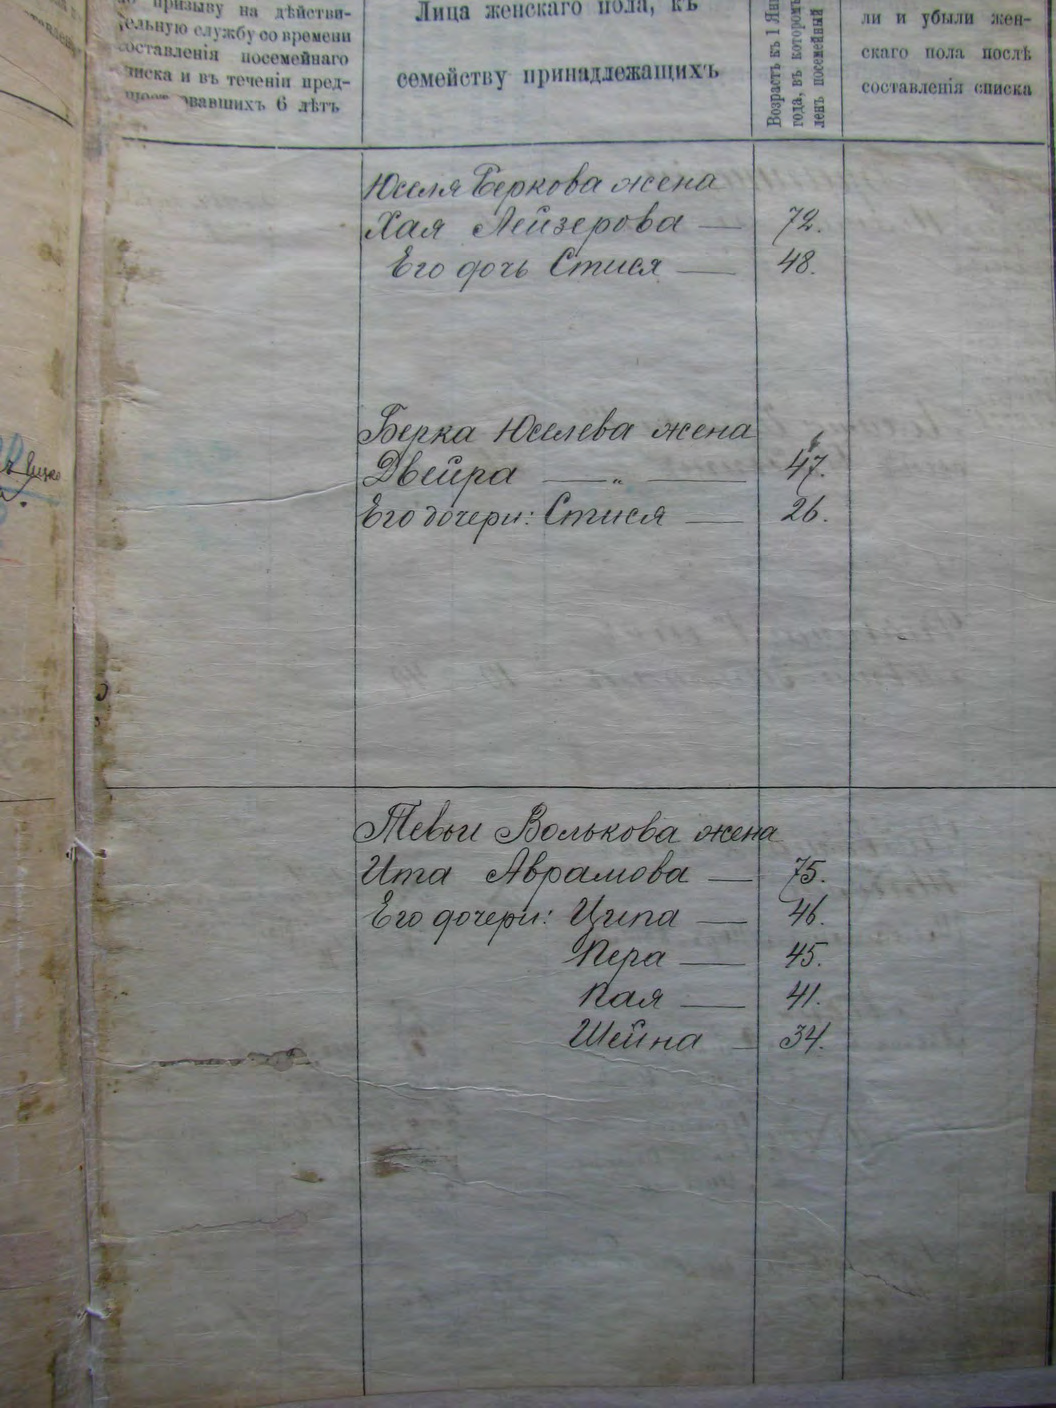 призыву на дѣйстви-
тельную службу со времени
составленія посемейнаго
списка и въ теченіи пред-
6 лѣтъ
Лица женскаго пола, къ
семейству принадлежащихъ
Возрастъ къ 1 Янв
года, въ которомъ
ленъ посемейный
ли и убыли жен-
скаго пола послѣ
составленія списка
Юселя Беркова жена
Хая Лейзерова — 72.
Его дочь Стися — 48.
Берка Юселева жена
Двейра — „ — 47.
Его дочери: Стися — 26.
Тевьи Волькова жена
Ита Аврамова — 75.
Его дочери: Ципа — 46.
Пера — 45.
Кая — 41.
Шейна — 34.